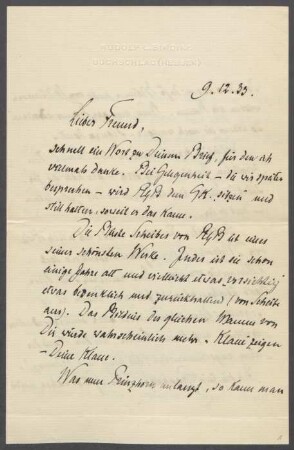 9.12.33.
Lieber Freund,
schnell ein Wort zu Deinem Brief, für den ich
vielmals danke. Bei Gelegenheit – die wir später
besprechen – wird RGB dem GK. sitzen und
still halten, soweit er das kann.
Die Scheibe von RGB ist eines
seiner schönsten Werke. Indes ist sie schon
einige Jahre alt und vielleicht etwas vorsichtig
etwas bedenklich und zurückhaltend (von Scheibe
aus). Das Bildnis des gleichen Mannes von
Dir würde wahrscheinlich mehr Klaue zeigen
– Deine Klaue.
Was nun Prinzhorn anlangt, so kann man